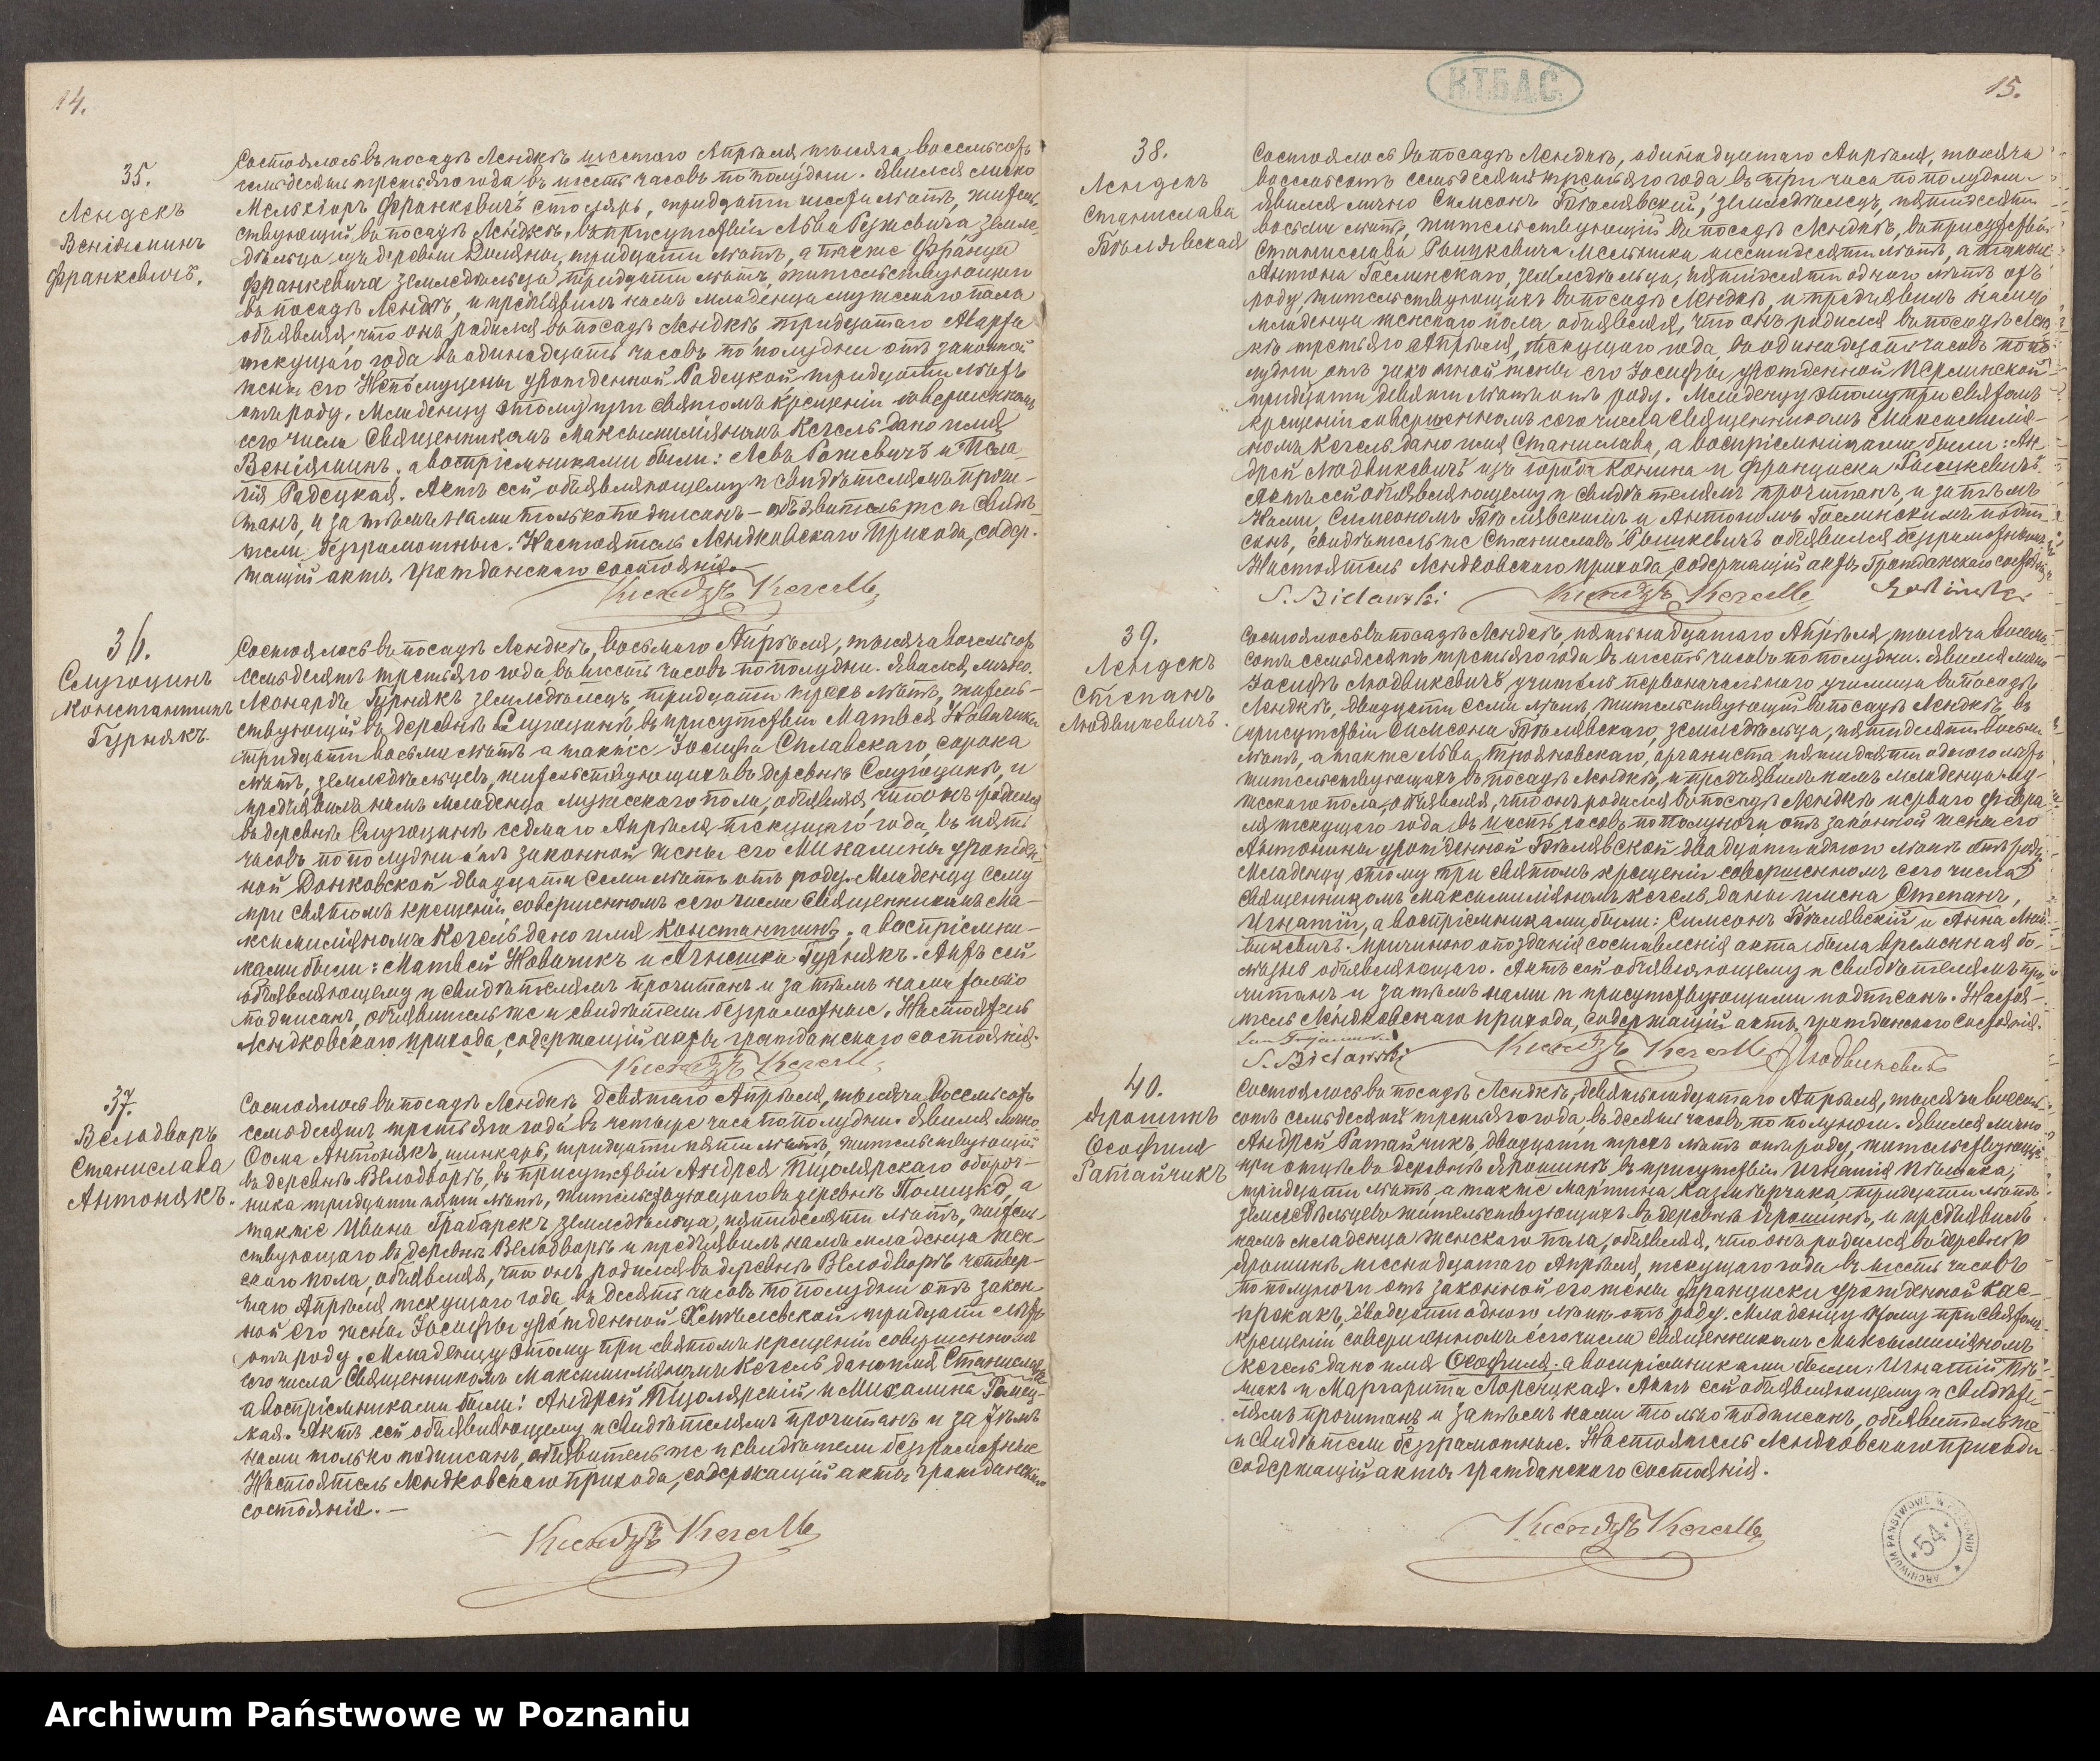 14.
35.
Лендекъ
Веніяминъ
Франкевичъ.
Состоялось въ посадѣ Лендкѣ шестаго Апрѣля тысяча восемьсотъ
семьдесятъ третьяго года въ шесть часовъ по полудни. Явился лично
Мельхіоръ Франкевичъ столяръ, тридцати шести лѣтъ, житель-
ствующій въ посадѣ Лендкѣ, въ присутствіи Льва земле-
дѣльца изъ деревни Доляны, тридцати лѣтъ, а также Франца
Франкевича земледѣльца, тридцати лѣтъ, жительствующаго
въ посадѣ Лендкѣ, и предъявилъ намъ младенца мужескаго пола
объявляя, что онъ родился въ посадѣ Лендкѣ тридцатаго Марта
текущаго года въ одинадцать часовъ по полудни отъ законной
жены его Непомуцены урожденной Радецкой тридцати лѣтъ
отъ роду. Младенцу этому при святомъ крещеніи совершенномъ
сего числа Священникомъ Максимиліяномъ Кегель дано имя
Веніяминъ, а воспріемниками были: Левъ и Пела-
гія Радецкая. Актъ сей объявляющему и свидѣтелямъ прочи-
танъ, и за тѣмъ нами только подписанъ – объявитель же и свидѣ-
тели безграмотные. Настоятель Лендковскаго Прихода, содер-
жащій акты гражданскаго состоянія.
Ксендзъ Кегель
36.
Слугоцинъ
Константинъ
Гурнякъ
Состоялось въ посадѣ Лендкѣ, восьмаго Апрѣля, тысяча восемьсотъ
семьдесятъ третьяго года въ шесть часовъ по полудни. Явился лично
Леонардъ Гурнякъ земледѣлецъ, тридцати трехъ лѣтъ, житель-
ствующій въ деревнѣ Слугоцинѣ, въ присутствіи Матвея Новичика
тридцати восьми лѣтъ а также Іосифа Сплавскаго, сорока
лѣтъ, земледѣльцевъ, жительствующихъ въ деревнѣ Слугоцинѣ, и
предъявилъ намъ младенца мужескаго пола, объявляя, что онъ родился
въ деревнѣ Слугоцинѣ седмаго Апрѣля текущаго года, въ пять
часовъ по полудни отъ законной жены его Михалины урожден-
ной Донковской двадцати семи лѣтъ отъ роду. Младенцу сему
при святомъ крещеніи, совершенномъ сего числа Священникомъ Ма-
ксимиліяномъ Кегель дано имя Константинъ, а воспріемни-
ками были: Матвей Новичикъ и Агнешка Гурнякъ. Актъ сей
объявляющему и свидѣтелямъ прочитанъ и за тѣмъ нами только
подписанъ, объявитель же и свидѣтели безграмотные. Настоятель
Лендковскаго прихода, содержащій акты гражданскаго состоянія.
Ксендзъ Кегель
37.
Велодворъ
Станислава
Антонякъ.
Состоялось въ посадѣ Лендкѣ девятаго Апрѣля, тысяча восемьсотъ
семьдесятъ третьяго года въ четыре часа по полудни. Явился лично
Ѳома Антонякъ, шинкарь, тридцати пяти лѣтъ, жительствующій
въ деревнѣ Велодворѣ, въ присутствіи Андрея оброч-
ника тридцати пяти лѣтъ, жительствующаго въ деревнѣ а
также Ивана Грабарекъ земледѣльца, пятидесяти лѣтъ, житель-
ствующаго въ деревнѣ Велодворѣ и предъявилъ намъ младенца жен-
скаго пола, объявляя, что онъ родился въ деревнѣ Велодворѣ четвер-
таго Апрѣля текущаго года, въ десять часовъ по полудни отъ закон-
ной его жены Іосифы урожденной тридцати лѣтъ
отъ роду. Младенцу этому при святомъ крещеніи совершенномъ
сего числа Священникомъ Максимиліяномъ Кегель дано имя Станислава
а воспріемниками были: Андрей и Михалина
Актъ сей объявляющему и свидѣтелямъ прочитанъ и за тѣмъ
нами только подписанъ, объявитель же и свидѣтели безграмотные
Настоятель Лендковскаго прихода, содержащій акты гражданскаго
состоянія. –
Ксендзъ Кегель
К.Т.Б.Д.С.
15.
38.
Лендекъ
Станислава
Бѣлявская
Состоялось въ посадѣ Лендкѣ, одинадцатаго Апрѣля, тысяча
восемьсотъ семьдесятъ третьяго года въ три часа по полудни
явился лично Симеонъ Бѣлявскій, земледѣлецъ, пятидесяти
восьми лѣтъ, жительствующій въ посадѣ Лендкѣ, въ присутствіи
Станислава мельника шестидесяти лѣтъ, а также
Антона Гослинскаго, земледѣльца, пятидесяти одного лѣтъ отъ
роду, жительствующихъ въ посадѣ Лендкѣ, и предъявилъ намъ
младенца женскаго пола, объявляя, что онъ родился въ посадѣ Ленд-
кѣ третьяго Апрѣля, текущаго года, въ одинадцать часовъ по по-
лудни отъ законной жены его Іосифы урожденной
тридцати девяти лѣтъ отъ роду. Младенцу этому при святомъ
крещеніи совершенномъ сего числа Священникомъ Максимилія-
номъ Кегель дано имя Станислава, а воспріемниками были: Ан-
дрей Людвикевичъ изъ города Конина и Франциска
Актъ сей объявляющему и свидѣтелямъ прочитанъ, и за тѣмъ
Нами, Симеономъ Бѣлявскимъ и Антономъ Гослинскимъ подпи-
санъ, свидѣтель же Станиславъ объявился безграмотнымъ.
Настоятель Лендковскаго прихода, содержащій акты Гражданскаго состоянія
S. Bielawski
Ксендзъ Кегель
Gosliński
39.
Лендекъ
Степанъ
Людвикевичъ.
Состоялось въ посадѣ Лендкѣ, пятнадцатаго Апрѣля, тысяча восемь-
сотъ семдесятъ третьяго года въ шесть часовъ по полудни. Явился лично
Іосифъ Людвикевичъ, учитель первоначальнаго училища въ посадѣ
Лендкѣ, двадцати семи лѣтъ, жительствующій въ посадѣ Лендкѣ, въ
присутствіи Симеона Бѣлявскаго, земледѣльца, пятидесяти восьми
лѣтъ, а также Льва Трояновскаго, органиста, пятидесяти одного лѣтъ
жительствующихъ въ посадѣ Лендкѣ, и предъявилъ намъ младенца му-
жескаго пола, объявляя, что онъ родился въ посадѣ Лендкѣ перваго Февра-
ля текущаго года, въ шесть часовъ по полуночи отъ законной жены его
Антонины урожденной Бѣлявской двадцати одного лѣтъ отъ роду.
Младенцу этому при святомъ крещеніи совершенномъ сего числа
Священникомъ Максимиліяномъ Кегель, даны имена Степанъ,
Игнатій, а воспріемниками были: Симеонъ Бѣлявскій и Анна Люд-
викевичъ. Причиною опозданія составленія акта была временная бо-
лѣзнь объявляющаго. Актъ сей объявляющему и свидѣтелямъ про-
читанъ и за тѣмъ нами и присутствующими подписанъ. Настоя-
тель Лендковскаго прихода, содержащій акты гражданскаго состоянія.
S. Bielawski
Ксендзъ Кегель
Людвикевичъ
40.
Ярошинъ
Ѳеофиля
Ратайчикъ
Состоялось въ посадѣ Лендкѣ, девятнадцатаго Апрѣля, тысяча восемь-
сотъ семьдесятъ третьяго года, въ десять часовъ по полудни. Явился лично
Андрей Ратайчикъ, двадцати трехъ лѣтъ отъ роду, жительствующій
при отцѣ въ деревнѣ Ярошинѣ, въ присутствіи Игнатія
тридцати лѣтъ, а также Мартина Казмѣрчака, тридцати лѣтъ
земледѣльцевъ жительствующихъ въ деревнѣ Ярошинѣ, и предъявилъ
намъ младенца женскаго пола, объявляя, что онъ родился въ деревнѣ
Ярошинѣ, шеснадцатаго Апрѣля, текущаго года въ шесть часовъ
по полуночи отъ законной его жены Франциски урожденной Кас-
пракъ, двадцати одного лѣтъ отъ роду. Младенцу этому при святомъ
крещеніи совершенномъ сего числа Священникомъ Максимиліяномъ
Кегель дано имя Ѳеофиля, а воспріемниками были: Игнатій
и Маргарита Актъ сей объявляющему и свидѣте-
лямъ прочитанъ и за тѣмъ нами только подписанъ, объявитель же
и свидѣтели безграмотные. Настоятель Лендковскаго прихода
содержащій акты гражданскаго состоянія.
Ксендзъ Кегель
ARCHIWUM PAŃSTWOWE W POZNANIU
54
Archiwum Państwowe w Poznaniu